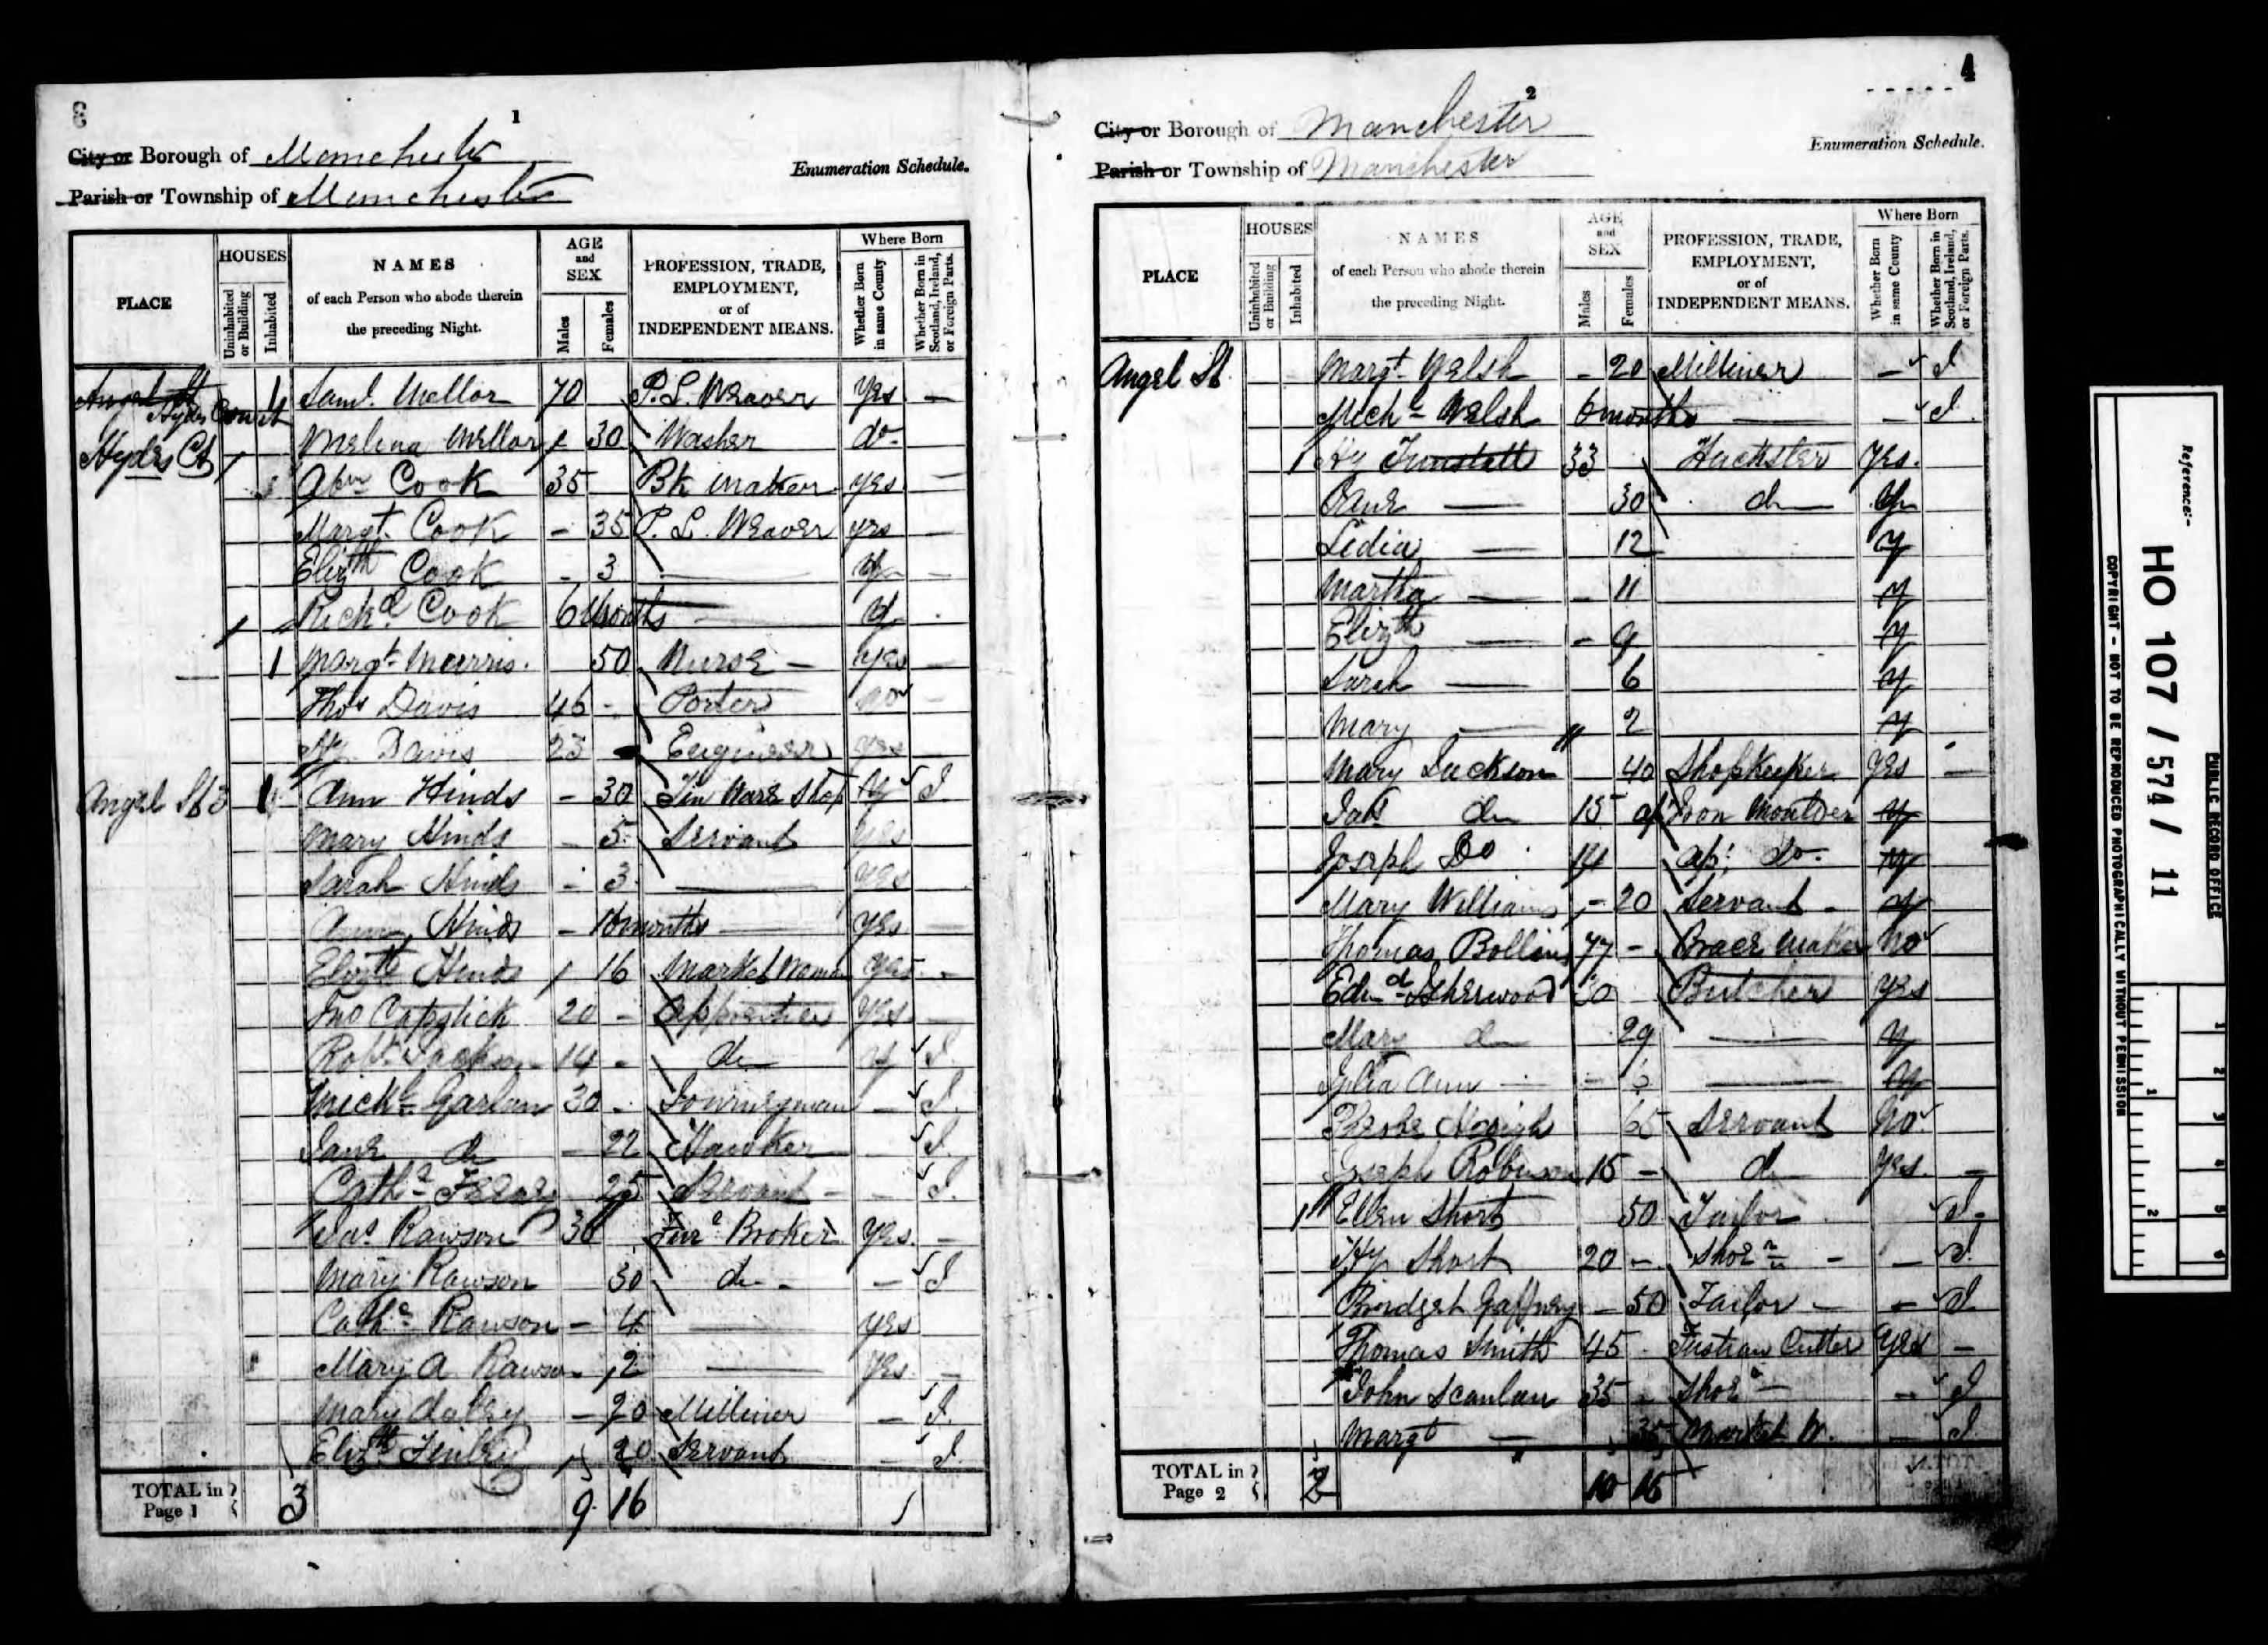 3
1
City or Borough of Manchester
Enumeration Schedule.
Parish or Township of Manchester
PLACE
HOUSES
Uninhabited or Building
Inhabited
NAMES
of each Person who abode therein
the preceding Night.
AGE and SEX
Males
Females
PROFESSION, TRADE, EMPLOYMENT, or of INDEPENDENT MEANS.
Where Born
Whether Born in same County
Whether Born in Scotland, Ireland, or Foreign Parts.
Angel St Hydes Court 1 Saml. Mellor 70 P. L. Weaver Yes —
Hydes Ct Melina Mellor 30 Washer do
1 Cook 35 Bk maker yes —
Margt. Cook – 35 P. L. Weaver yrs —
Elizth Cook – 3 — y —
Richd Cook 6 Months — y
1 Margt. Morris. 50 Nurse – yes —
Thos Davis 45 – Porter no –
Hy. Davis 25 Engineer yes —
Angel St 3 1 Ann Hinds – 30 Tin Ware Shop I.
Mary Hinds – 5 Servant yes
Sarah Hinds – 3 — yes
Ann Hinds – months — yes —
Elizth Hinds 16 Market Woman yes –
Jno Capstick 20 – Apprentice yes —
Robt. Jackson 14 – do y I.
Michl Garlan 30 – Journeyman – I.
Jane do – 22 Hawker – I.
Cathe 25 Servant – – I.
Jas Rawson 30 Fure Broker yes. –
Mary Rawson 30 do – – I
Cathe Rawson – 4 — yes
Mary A Rawson 2 — yes. –
Mary – 20 Milliner – I.
Elizth 20 Servant – I
TOTAL in Page 1 3 9 16
4
2
City or Borough of Manchester
Enumeration Schedule.
Parish or Township of Manchester
PLACE
HOUSES
Uninhabited or Building
Inhabited
NAMES
of each Person who abode therein
the preceding Night.
AGE and SEX
Males
Females
PROFESSION, TRADE, EMPLOYMENT, or of INDEPENDENT MEANS.
Where Born
Whether Born in same County
Whether Born in Scotland, Ireland, or Foreign Parts.
Angel St. Margt. Welsh – 20 Milliner – I
Michl Welsh 6 months — – I.
1 Hy Tunstall 33 Huckster Yes.
Jane — 30 do y
Lidia — 12 y
Martha — – 11 y
Elizth — – 9 y
Sarah — 6 y
Mary — 2 y
Mary Jackson 40 Shopkeeper Yes —
do 15 ap Iron Moulder y
Joseph Do 14 ap: do. y
Mary Williams – 20 Servant – y
Thomas Bollins – maker no
Edmd Isherwood Butcher yes
Mary do 29 — y
Ann — – —
65 Servant No
Joseph Robinson 15 – do Yes. –
1 Ellen Short 50 Tailor I –
Hy Short 20 – Shoe – – I.
Bridget Gaffney – 50 Tailor – – I
Thomas Smith 45 Fustian Cutter Yes –
John Scanlan 35 – Shoe – – I
Margt — 35 Market W. — I
TOTAL in Page 2 2 10 15
Reference:-
HO 107 / 574 / 11
PUBLIC RECORD OFFICE
COPYRIGHT - NOT TO BE REPRODUCED PHOTOGRAPHICALLY WITHOUT PERMISSION
1
2
3
4
5
6
1
2